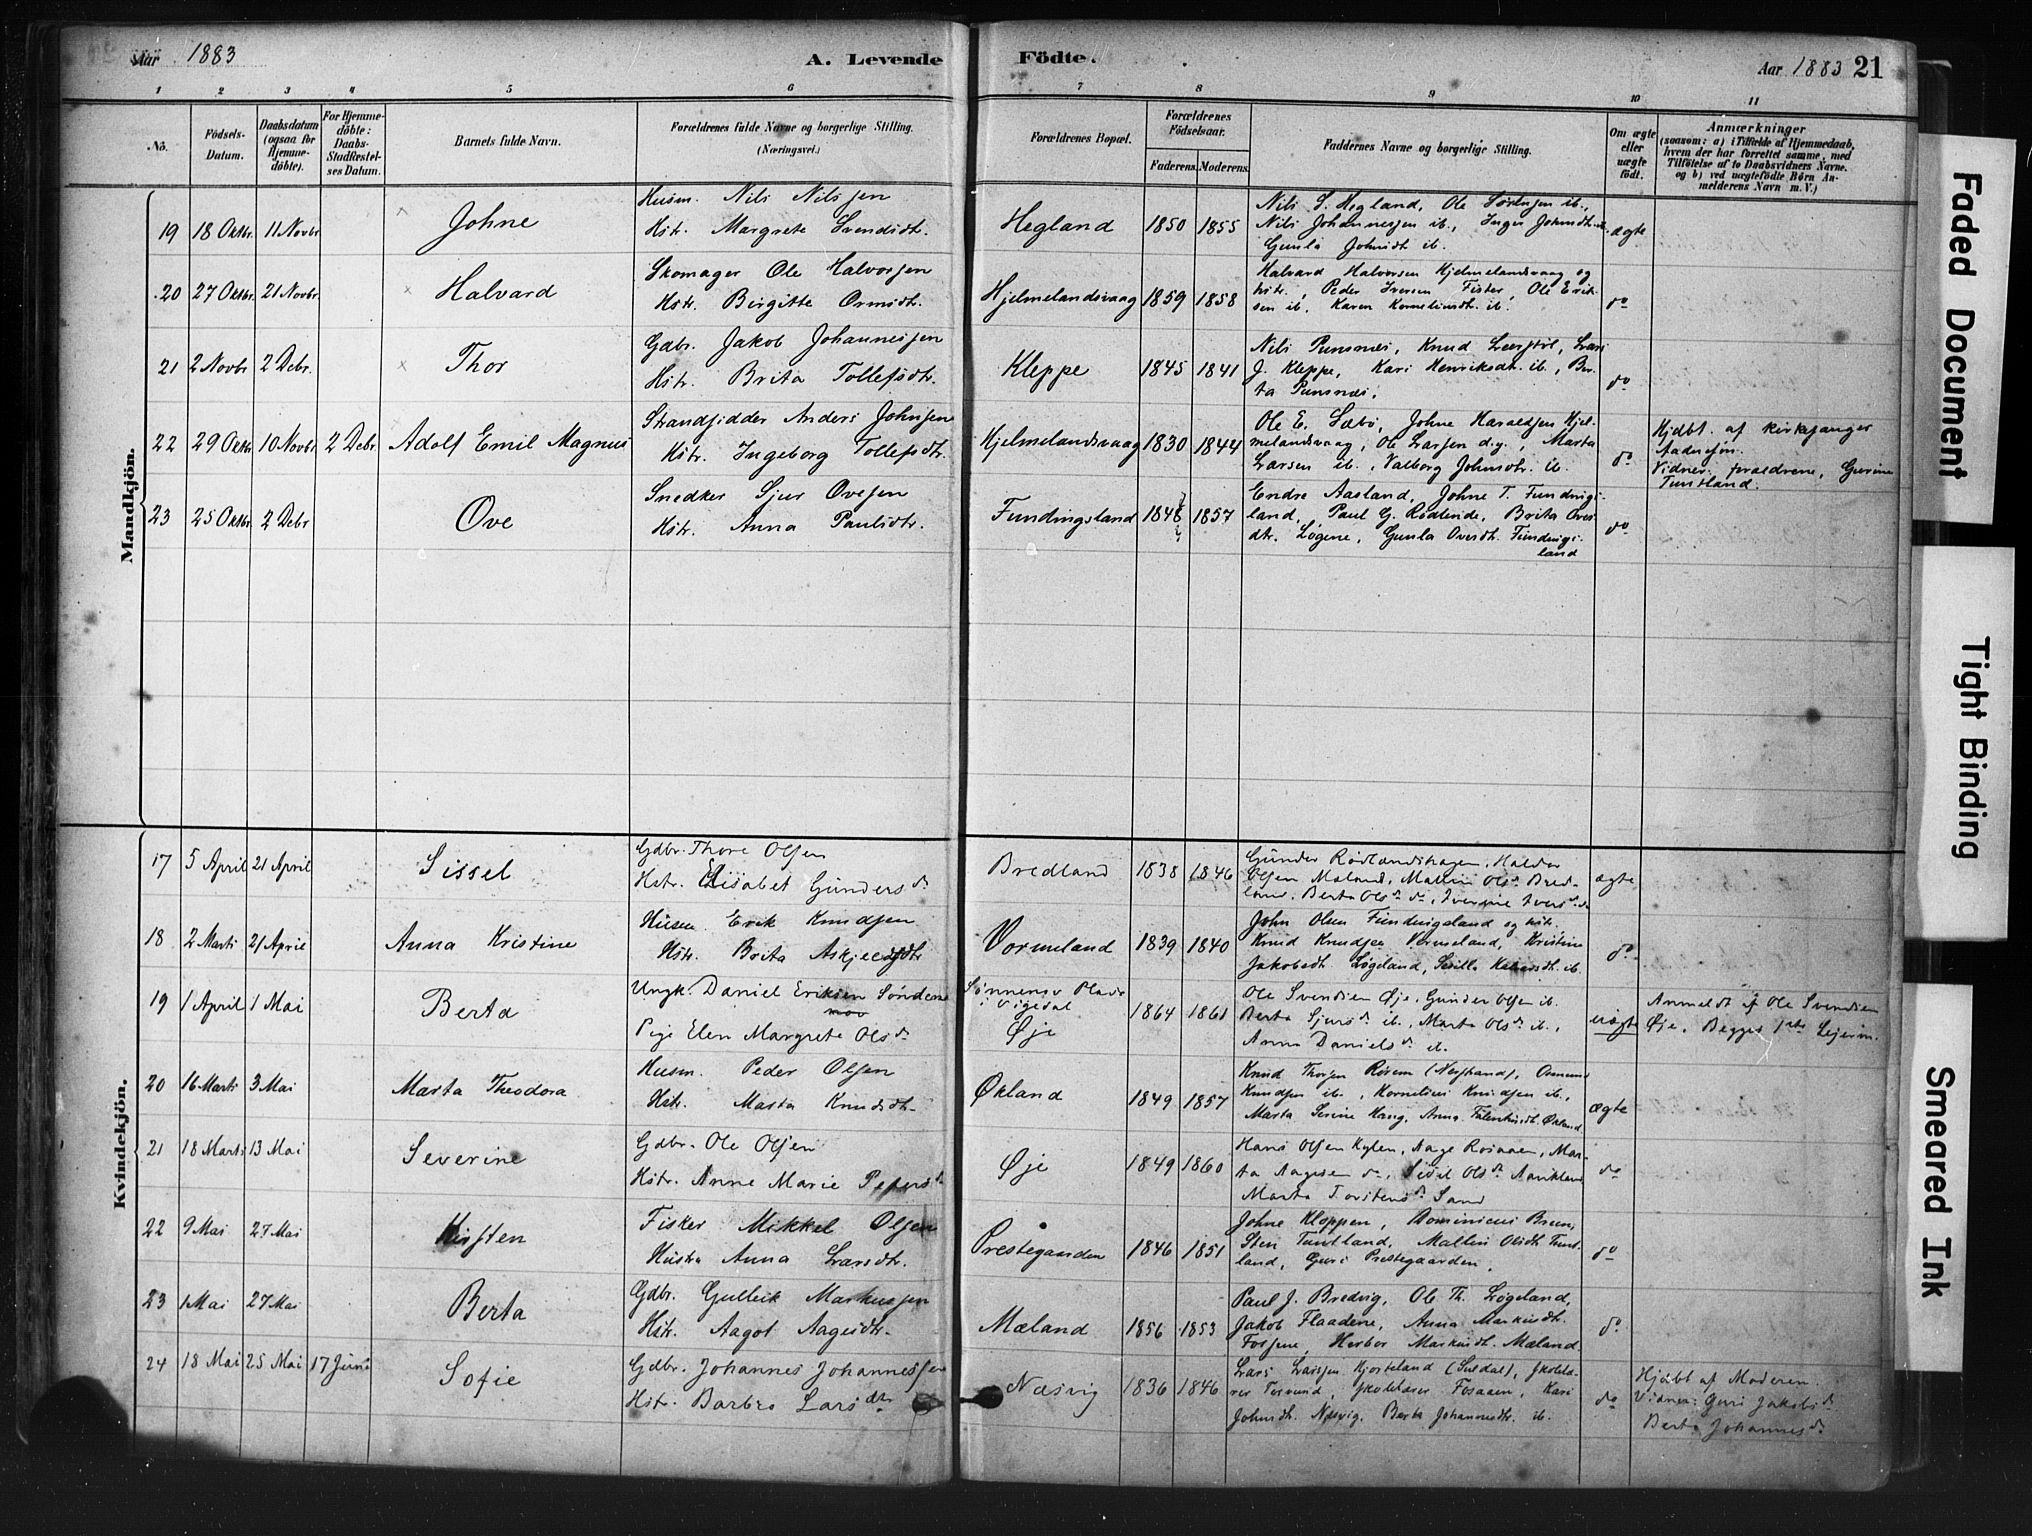 Aar 1883 A. Levende Födte. Aar 1883 21
1 2 3 4 5 6 7 8 9 10 11
No. Födsels-Datum. Daabsdatum (ogsaa for Hjemmedöbte). For Hjemmedöbte: Daabs-Stadfæstelses Datum. Barnets fulde Navn. Forældrenes fulde Navne og borgerlige Stilling. (Næringsvei.) Forældrenes Bopæl. Forældrenes Födselsaar. Faderens. Moderens. Faddernes Navne og borgerlige Stilling. Om ægte eller uægte födt. Anmærkninger (saasom: a) i Tilfælde af Hjemmedaab, hvem der har forrettet samme, med Tilföielse af to Daabsvidners Navne. og b) ved uægtefödte Börn Anmelderens Navn m. V.)
Mandkjön.
19 18 Oktbr. 11 Novbr. Johne Husm. Nils Nilssen
Hstr. Margrete Svendsdt. Hegland 1850 1855 ægte
Nils S. Hegland, Ole Sörensen ib.,
Nils Johannessen ib., Inger Johnsdt. ib.
Gunla Johnsdt ib.
20 27 Oktbr. 21 Novbr. Halvard Skomager Ole Halvorsen
Hstr. Birgitte Ormsdt. Hjelmelandsvaag 1859 1858 do
Halvard Halvorsen Hjelmelandsvaag og
hstr., Peder Iversen Fister, Ole Erik-
sen ib. Karen Korneliusdt. ib.
21 2 Novbr 2 Debr. Thor Gdbr. Jakob Johannessen
Hstr. Brita Tollefsdtr. Kleppe 1845 1841 do
Nils Punsnes, Knud, Lars
J. Kleppe, Kari Henriksdt. ib., Bri-
ta Punsnes.
22 29 Oktbr 10 Novbr 2 Debr. Adolf Emil Magnus Strandsidder Anders Johnsen
Hstr. Ingeborg Tollefsdtr. Hjelmelandsvaag 1830 1844 do
Ole E. Sæbö, Johne Haraldsen Hjel-
melandsvaag, Ole Larsen d.y., Marta
Larsen ib., Valborg Johnsdtr. ib.
Hjdbt. af kirkesanger
Vidner: forældrene, Gurine
Tuntland.
23 25 Oktbr 2 Debr Ove Snedker Sjur Ovesen
Hstr. Anna Paulsdtr. Fundingsland 1848 1857 do
Endre Aasland, Johne T. Fundings-
land, Paul G. Rödlende, Brita Oves-
dtr. Lögene, Gunla Ovesdt. Fundings-
land
Kvindekjön.
17 5 April 21 April Sissel Gdbr. Thore Olsen
Hstr. Elisabet Gundersdr. Bredland 1838 1846 ægte
Gunder Rödlandshagen, Haldor
Olsen Mæland, Malline Olsdr. Bred-
land, Berta Olsdr. do, Iversdr. do
18 2 Marts 21 April Anna Kristine Husm. Erik Knudsen
Hstr. Brita Askjeldsdtr Vormeland 1839 1840 do
John Olsen Fundingsland og hstr.
Knud Knudsen Vormeland, Kristine
Jakobsdt. Lögeland, ib.
19 1 April 1 Mai Berta Ungk. Daniel Eriksen Söndenaa
Pige Elen Margrete Olsdr. i Vigedal
Øje 1864 1861 uægte
Ole Svendsen Øje, Gunder Olsen ib.
Berta Sjursdr. ib., Marta Olsdr. ib.,
Anna Danielsdr. ib.
Anmeldt af Ole Svendsen
Øje. Begges 1ste Leierm.
20 16 Marts 3 Mai Marta Theodora Husm. Peder Olsen
Hstr. Marta Knudsdt. Økland 1849 1857 ægte
Knud Thorsen (Nerstrand), Osmund
Knudsen ib., Kornelius Knudsen ib.,
Marta Serine Haug, Anna Økland
21 18 Marts 13 Mai Severine Gdbr. Ole Olsen
Hstr. Anne Marie Petersdr. Øje 1849 1860 do
Hans Olsen Kylen, Aage Rosaaen, Mar-
ta Aagesen do, Sissel Olsdr.
Marta Torstensdr. Sand
22 9 Mai 27 Mai Kirsten Fisker Mikkel Olsen
Hustru Anna Larsdtr. Prestegaarden 1846 1851 do
Johne Kleppen, Dominicus Brun,
Sten Tuntland, Malline Olsdt. Tunt-
land, Guri Prestegaarden.
23 1 Mai 27 Mai Berta Gdbr. Gulleik Markussen
Hstr. Aagot Aagesdtr. Mæland 1856 1853 do
Paul J. Bredvig, Ole Th. Lögeland,
Jakob Flaadene, Anna Markusdt.
Fossene, Herbor Markusdt. Mæland
24 18 Mai 25 Mai 17 Juni Sofie Gdbr. Johannes Johannessen
Hstr. Barbro Larsdtr Næsvig 1836 1846 do
Lars Larssen Hjorteland (Suldal), skolelæ-
rer, skolelærer Fosaaen, Kari
Johnsdt. Næsvig, Berta Johannesdt. ib.
Hjdbt af Moderen.
Vidner: Guri Jakobsdr.
Berta Johannesdr.
Faded Document
Tight Binding
Smeared Ink